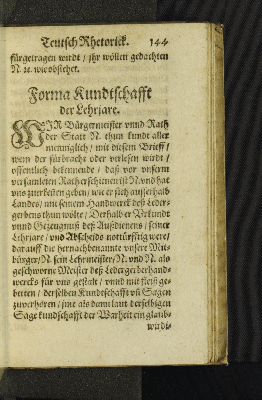 Teutsch Rhetorick. 144
fürgetragen wirdt / jhr wöllen gedachten
N. ꝛc. wie obstehet.
Forma Kundtschafft
der Lehrjare.
WJR Bürgermeister vnnd Rath
der Statt N. thun kundt aller
menniglich / mit diesem Brieff /
wem der fürbracht oder verlesen wirdt /
offentlich bekennende / daß vor vnserm
versamleten Rath erschienen ist N. vnd hat
vns zuerkeñen geben / wie er sich ausserhalb
Landes / mit seinem Handwerck deß Leder-
gerbens thun wölte / Derhalb er Vrkundt
vnnd Gezeugnuß deß Außdienens / seiner
Lehrjare / vnd Abscheids notturfftig were /
darauff die hernachbenannte vnsere Mit-
bürger / N. sein Lehrmeister / N. vnd N. als
geschworne Meister deß Ledergerberhand-
wercks für vns gestalt / vnnd mit fleiß ge-
betten / derselben Kundtschafft vñ Sagen
zuverhören / jme als dann laut derselbigen
Sage kundschafft der Warheit ein glaub-
wirdi-